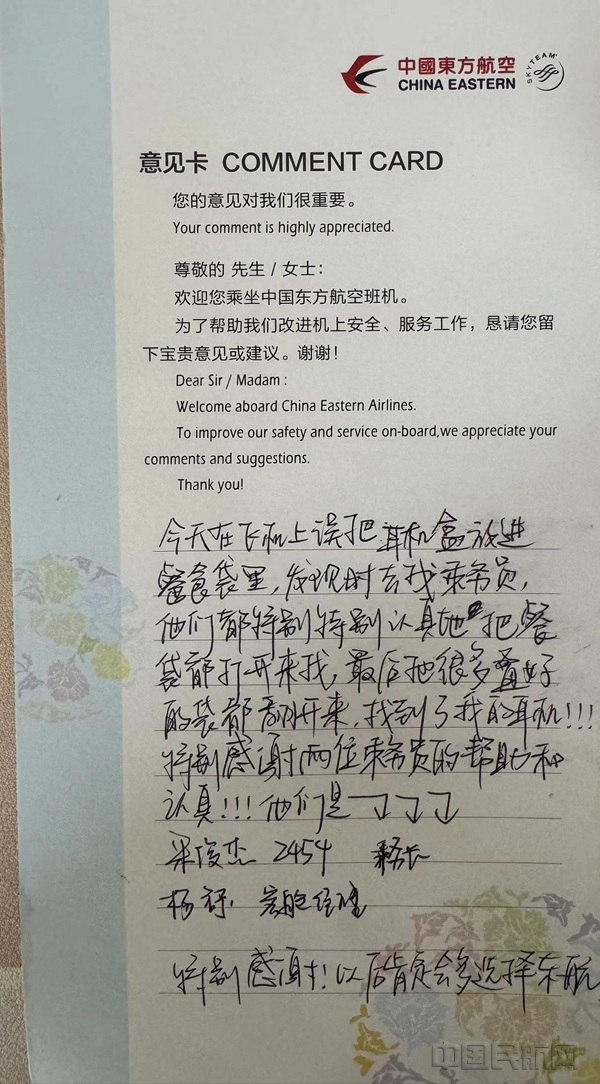 中國東方航空
CHINA EASTERN
SKYTEAM
意见卡 COMMENT CARD
您的意见对我们很重要。
Your comment is highly appreciated.
尊敬的 先生 / 女士：
欢迎您乘坐中国东方航空班机。
为了帮助我们改进机上安全、服务工作，恳请您留
下宝贵意见或建议。谢谢！
Dear Sir / Madam :
Welcome aboard China Eastern Airlines.
To improve our safety and service on-board,we appreciate your
comments and suggestions.
Thank you!
今天在飞机上误把耳机盒放进
餐食袋里，发现时去找乘务员，
他们都特别特别认真地把餐
袋都打开来找，最后把很多叠好
的袋都翻开来，找到了我的耳机!!!
特别感谢两位乘务员的帮助和
认真!!! 他们是↴↴↴
梁俊杰 2454 乘务长
杨 客舱经理
特别感谢！以后肯定会多选择东航
中国民航网